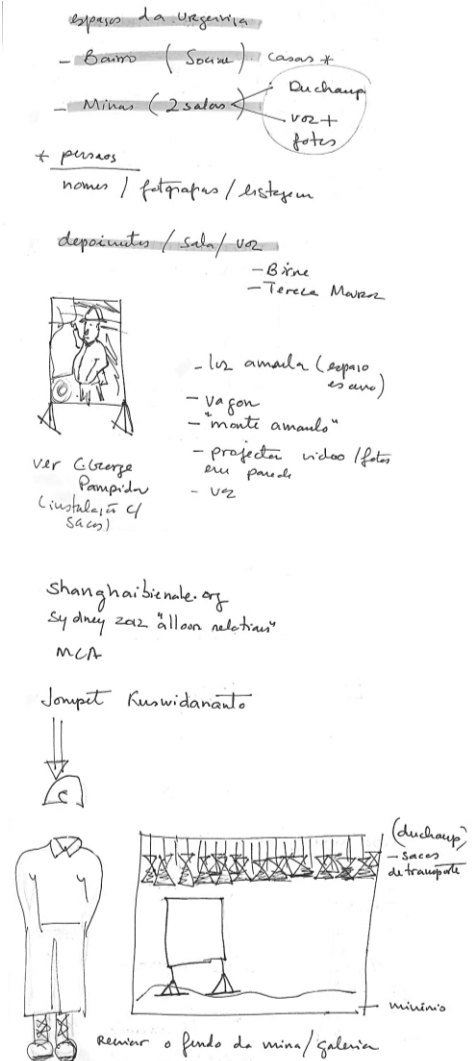 espaços da urgeiriça
- Bairro (Social) casas *
- Minas (2 salas)
Duchamp
voz +
fotos
* pessoas
nomes / fotografias / listagem
depoimentos / sala / voz
- Tereca
- luz amarela (espaço
escuro)
- vagon
- "monte amarelo"
- projectar video / fotos
em parede
- voz
ver George
Pampidou
(instalação c/
sacos)
shanghaibienale.org
Sydney 2012 "all our relations"
MCA
Jompet Kuswidananto
(duchamp)
- sacos
de transporte
o fundo da mina / galeria